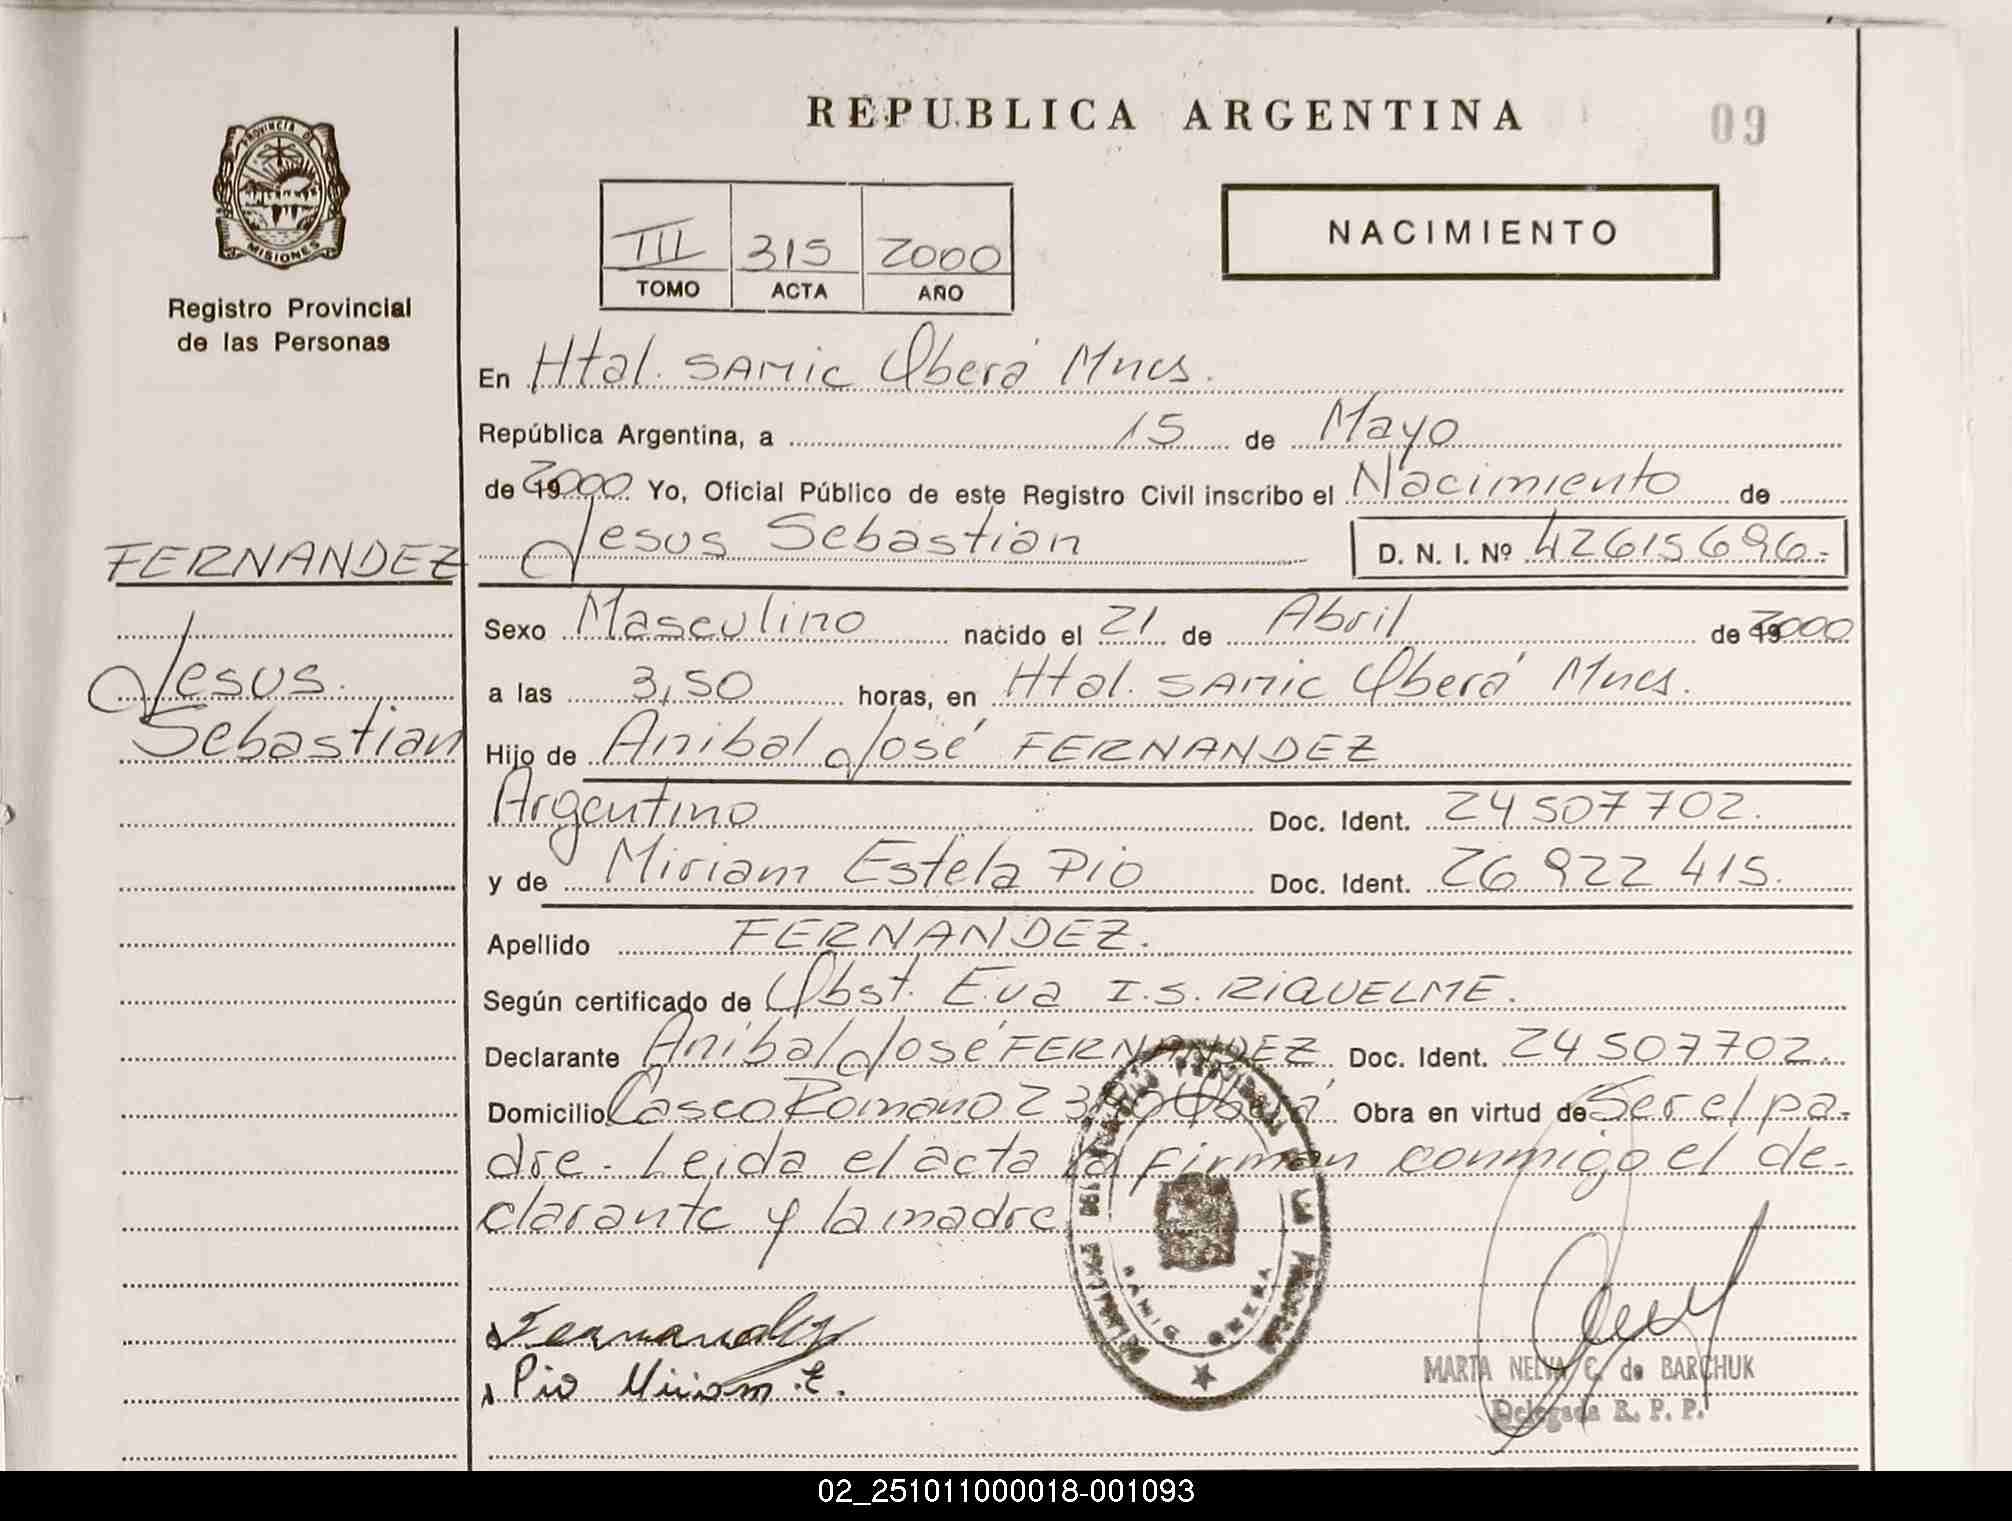 REPUBLICA ARGENTINA
09
PROVINCIA DE
MISIONES
Registro Provincial
de las Personas
III 315 2000
TOMO ACTA AÑO
NACIMIENTO
En Htal. SAMIC Oberá Mnes.
República Argentina, a 15 de Mayo
de 2000 Yo, Oficial Público de este Registro Civil inscribo el Nacimiento de
Jesus Sebastian D. N. I. Nº 42615696.-
FERNANDEZ
Jesus.
Sebastian
Sexo Masculino nacido el 21 de Abril de 2000
a las 3,50 horas, en Htal. SAMIC Oberá Mnes.
Hijo de Anibal José FERNANDEZ
Argentino Doc. Ident. 24507702.
y de Miriam Estela Pio Doc. Ident. 26922415.
Apellido FERNANDEZ.
Según certificado de Obst. Eva I.S. RIQUELME.
Declarante Anibal José FERNANDEZ Doc. Ident. 24507702.
Domicilio Casco Romano Oberá Obra en virtud de Ser el pa-
dre. Leida el acta la firman conmigo el de-
clarante y la madre
Fernandez
Pio Miriam. E.
SAMIC OBERA
MARTA NELVA C. de BARCHUK
Delegada R. P. P.
02_251011000018-001093